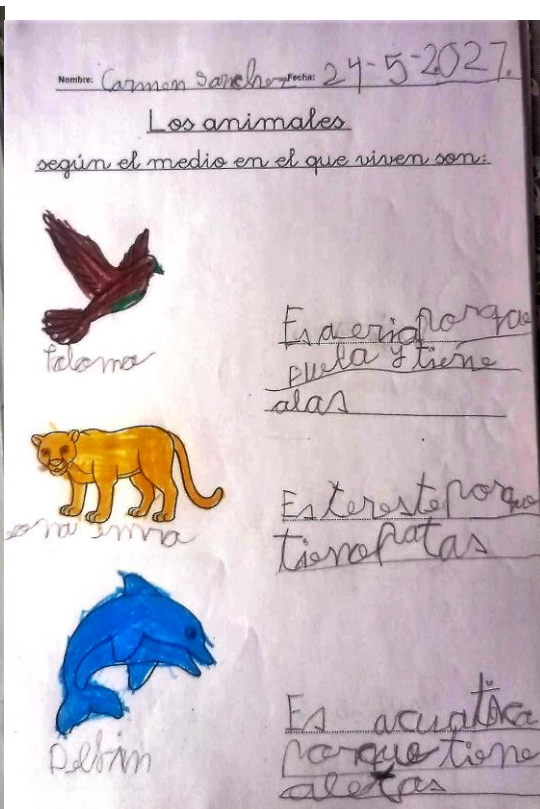 Nombre: Carmen Sanchez Fecha: 24-5-2027.
Los animales
según el medio en el que viven son:
Paloma
Es aeria porque
vuela y tiene
alas
Es tereste porque
tiene patas
Delfin
Es acuatica
porque tiene
aletas